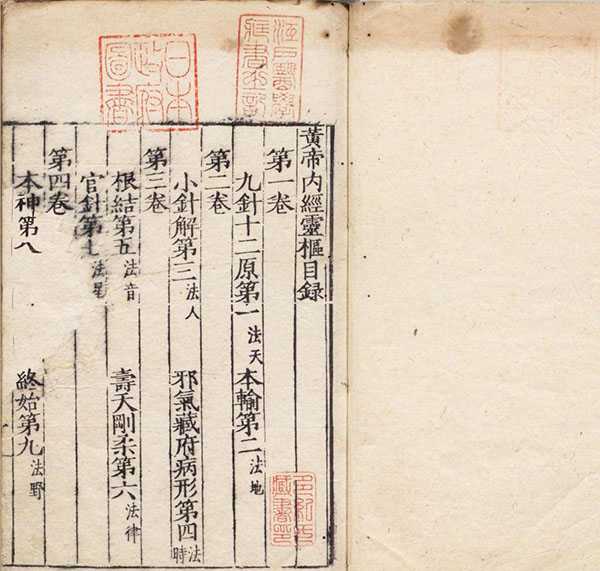 黄帝內經靈樞目録
第一卷
九針十二原第一法天 本輸第二法地
第二卷
小針解第三法人 邪氣藏府病形第四法時
第三卷
根結第五法音 壽夭剛柔第六法律
官針第七法星
第四卷
本神第八 終始第九法野
日本政府圖書
江戸醫學
藏書